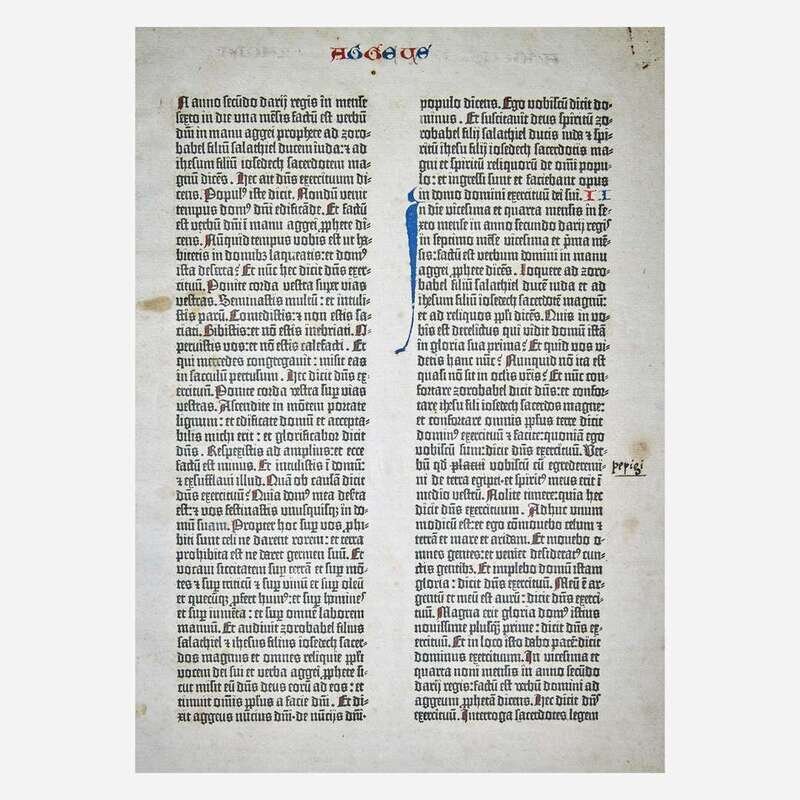 AGGEUS
N anno secūdo darij regis in mense
sexto in die una mēsis factū est verbū
dn̄i in manu aggei prophete ad zoro-
babel filiū salathiel ducem iuda: et ad
ihesum filiū iosedech sacerdotem ma-
gnū dicēs. Hec ait dn̄s exercituum di-
cens. Populꝰ iste dicit. Nondū venit
tempus domꝰ dn̄i edificāde. Et factū
est verbū dn̄i ī manu aggei ꝓphete di-
cens. Nūquid tempus vobis est ut ha-
bitetis in domibꝫ laqueatis: et domꝰ
ista deserta? Et nūc hec dicit dn̄s exer-
cituū. Ponite corda vestra super vias
vestras. Seminastis multū: et intuli-
stis parū. Comedistis: et non estis sa-
ciati. Bibistis: et nō estis inebriati. O-
peruistis vos: et nō estis calefacti. Et
qui mercedes congregauit: misit eas
in sacculū pertusum. Hec dicit dn̄s ex-
ercituū. Ponite corda vestra suꝑ vias
vestras. Ascendite in mōtem portate
lignum: et edificate domū: et accepta-
bilis michi erit: et glorificabor dicit
dn̄s. Respexistis ad amplius: et ecce
factū est minus. Et intulistis ī domū:
et exsufflaui illud. Quā ob causā dicit
dn̄s exercituū? Quia domꝰ mea deserta
est: et vos festinastis unusquisqꝫ in do-
mū suam. Propter hoc suꝑ vos ꝓhi-
biti sunt celi ne darent rorem: et terra
prohibita est ne daret germen suū. Et
vocaui siccitatem suꝑ terrā et suꝑ mō-
tes et suꝑ triticū et suꝑ vinū et suꝑ oleū
et quecūqꝫ ꝓfert humꝰ: et suꝑ homines
et suꝑ iumēta: et suꝑ omnē laborem
manuū. Et audiuit zorobabel filius
salathiel et ihesus filius iosedech sacer-
dos magnus et omnes reliquie ppl̄i
vocem dei sui et verba aggei ꝓphete si-
cut misit eū dn̄s deus eorū ad eos: et
timuit omīs ppl̄us a facie dn̄i. Et di-
xit aggeus nūcius dn̄i de nūcijs dn̄i
populo dicens. Ego vobiscū dicit do-
minus. Et suscitauit deus spiritū zo-
robabel filij salathiel ducis iuda et spi-
ritū ihesu filij iosedech sacerdotis ma-
gni et spiritū reliquorū de omī popu-
lo: et ingressi sunt et faciebant opus
in domo domini exercituū dei sui. II
In die vicesima et quarta mensis in se-
xto mense in anno secundo darij regis
in septimo mēse vicesima et prima mē-
sis: factū est verbum domini in manu
aggei ꝓphete dicēs. Loquere ad zoro-
babel filiū salathiel ducē iuda et ad
ihesum filiū iosedech sacerdotē magnū:
et ad reliquos ppl̄i dicēs. Quis in vo-
bis est derelictus qui vidit domū istā
in gloria sua prima? Et quid vos vi-
detis hanc nūc? Nunquid nō ita est
quasi nō sit in oclis vr̄is? Et nūc con-
fortare zorobabel dicit dn̄s: et confor-
tare ihesu fili iosedech sacerdos magne:
et confortare omnis ppl̄us terre dicit
dominꝰ exercituū et facite: quoniā ego
vobiscū sum: dicit dn̄s exercituū. Ver-
bū qd̄ placui vobiscū cū egrederemi-
pepigi
ni de terra egipti: et spiritꝰ meus erit ī
medio vestrū. Nolite timere: quia hec
dicit dn̄s exercituum. Adhuc unum
modicū est: et ego cōmouebo celum et
terrā et mare et aridam. Et mouebo o-
mnes gentes: et veniet desideratꝰ cun-
ctis gentibꝫ. Et implebo domū istam
gloria: dicit dn̄s exercituū. Meū ē ar-
gentū et meū est aurū: dicit dn̄s exerci-
tuū. Magna erit gloria domꝰ istius
nouissime plusqꝫ prime: dicit dn̄s ex-
ercituū. Et in loco isto dabo pacē: dicit
dominus exercituum. In vicesima et
quarta noni mensis in anno secūdo
darij regis: factū est verbū domini ad
aggeum ꝓphetā dicens. Hec dicit dn̄s
exercituū. Interroga sacerdotes legem